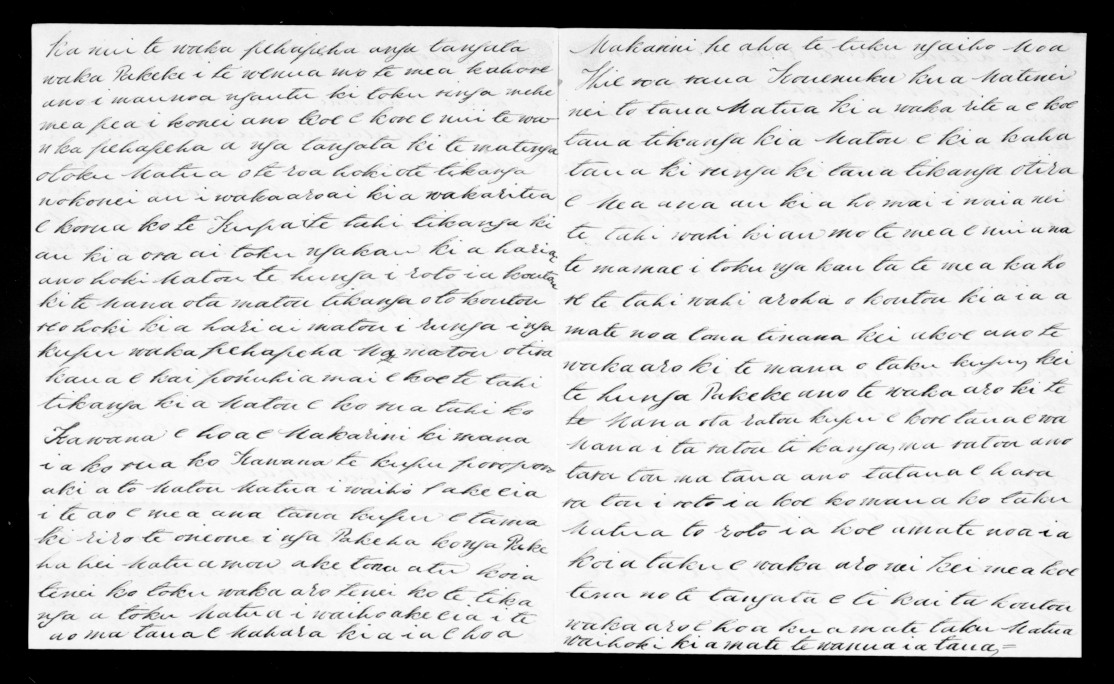 Ka nui te waka pehapeha anga tangata
waka Pakeke i te wenua mo te mea kahore
ano i mau noa nga utu ki toku ringa nehe
mea pea i konei ano tkoe e kore e nui te wa
ka pehapeha a nga tangata ki te matenga
otoku Matua o te roa hoki o te tikanga
nokonei au i waka aro ai ki a wakaritea
e korua ko te Kupa ite tahi tikanga ki
au ki a ora ai toku ngakau ki a hari
ano hoki Matou te hunga i roto ia koutou
ki te Mana ota matou tikanga oto koutou
reo hoki ki a hari ai matou i runga i nga
kupu waka pehapeha Na matou otira
kaua e kai ponuhia mai e koe te tahi
tikanga ki a Matou e ko rua tahi ko
Kawana e hoa e Makarini ki mana
i a ko rua ko Kawana te kupu poropor
aki a to Matou Matua i waiho ake e ia
i te ao e mea ana tana kupu e tama
ki riro te oneone i nga Pakeha ko nga Pake
ha hei Matua mou ake tonu atu koia
tenei ko toku waka aro tenei ko te tika
nga a toku Matua i waiho ake e ia i te
ao ma taua e Mahara ki a ia e hoa
Makarini he aha te tuku ngaiho Noa
Hie roa rawa Kouenuku ku a Matenei
nei to taua Matua ki a waka rite a e koe
taua tikanga ki a Matou e ki a kaha
taua ki runga ki taua tikanga otira
e Mea ana au ki a ho mai i naia nei
te tahi wahi ki au mo te mea e nui ana
te mamae i toku nga kau ta te mea kaho
re te tahi wahi aroha o koutou ki a ia a
mate noa tona tinana kei akoe ano te
waka aro ki te mana o taku kupu, kei
te hunga Pakeke ano te waka aro ki te
Mana ota ratou kupu e kore taua e wa
Mana i ta ratou ti kanga, ma ratou ano
tara tou ma taua ano ta taua e hara
ra tou i roto ia koe ko maua ko taku
Matua to roto ia koe a mate noa ia
koia taku e waka aro nei kei mea koe
tena no te tangata e ti kai ta koutou
waka aro e hoa ku a mate taku Matua
waihoki ki a mate te wanua ia taua, =